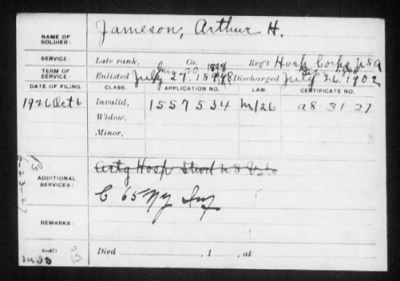 NAME OF SOLDIER: Jameson, Arthur H.
SERVICE: Late rank, Co. Reg't Hosp Corps USA
TERM OF SERVICE: Enlisted July 27, 1899 Discharged July 26, 1902
DATE OF FILING. CLASS. APPLICATION NO. LAW. CERTIFICATE NO.
1926 Oct 6 Invalid, 1557534 M/26 a8 31 27
Widow,
Minor,
ADDITIONAL SERVICES: Hosp
C 65 NY Inf
REMARKS:
Died , 1 , at